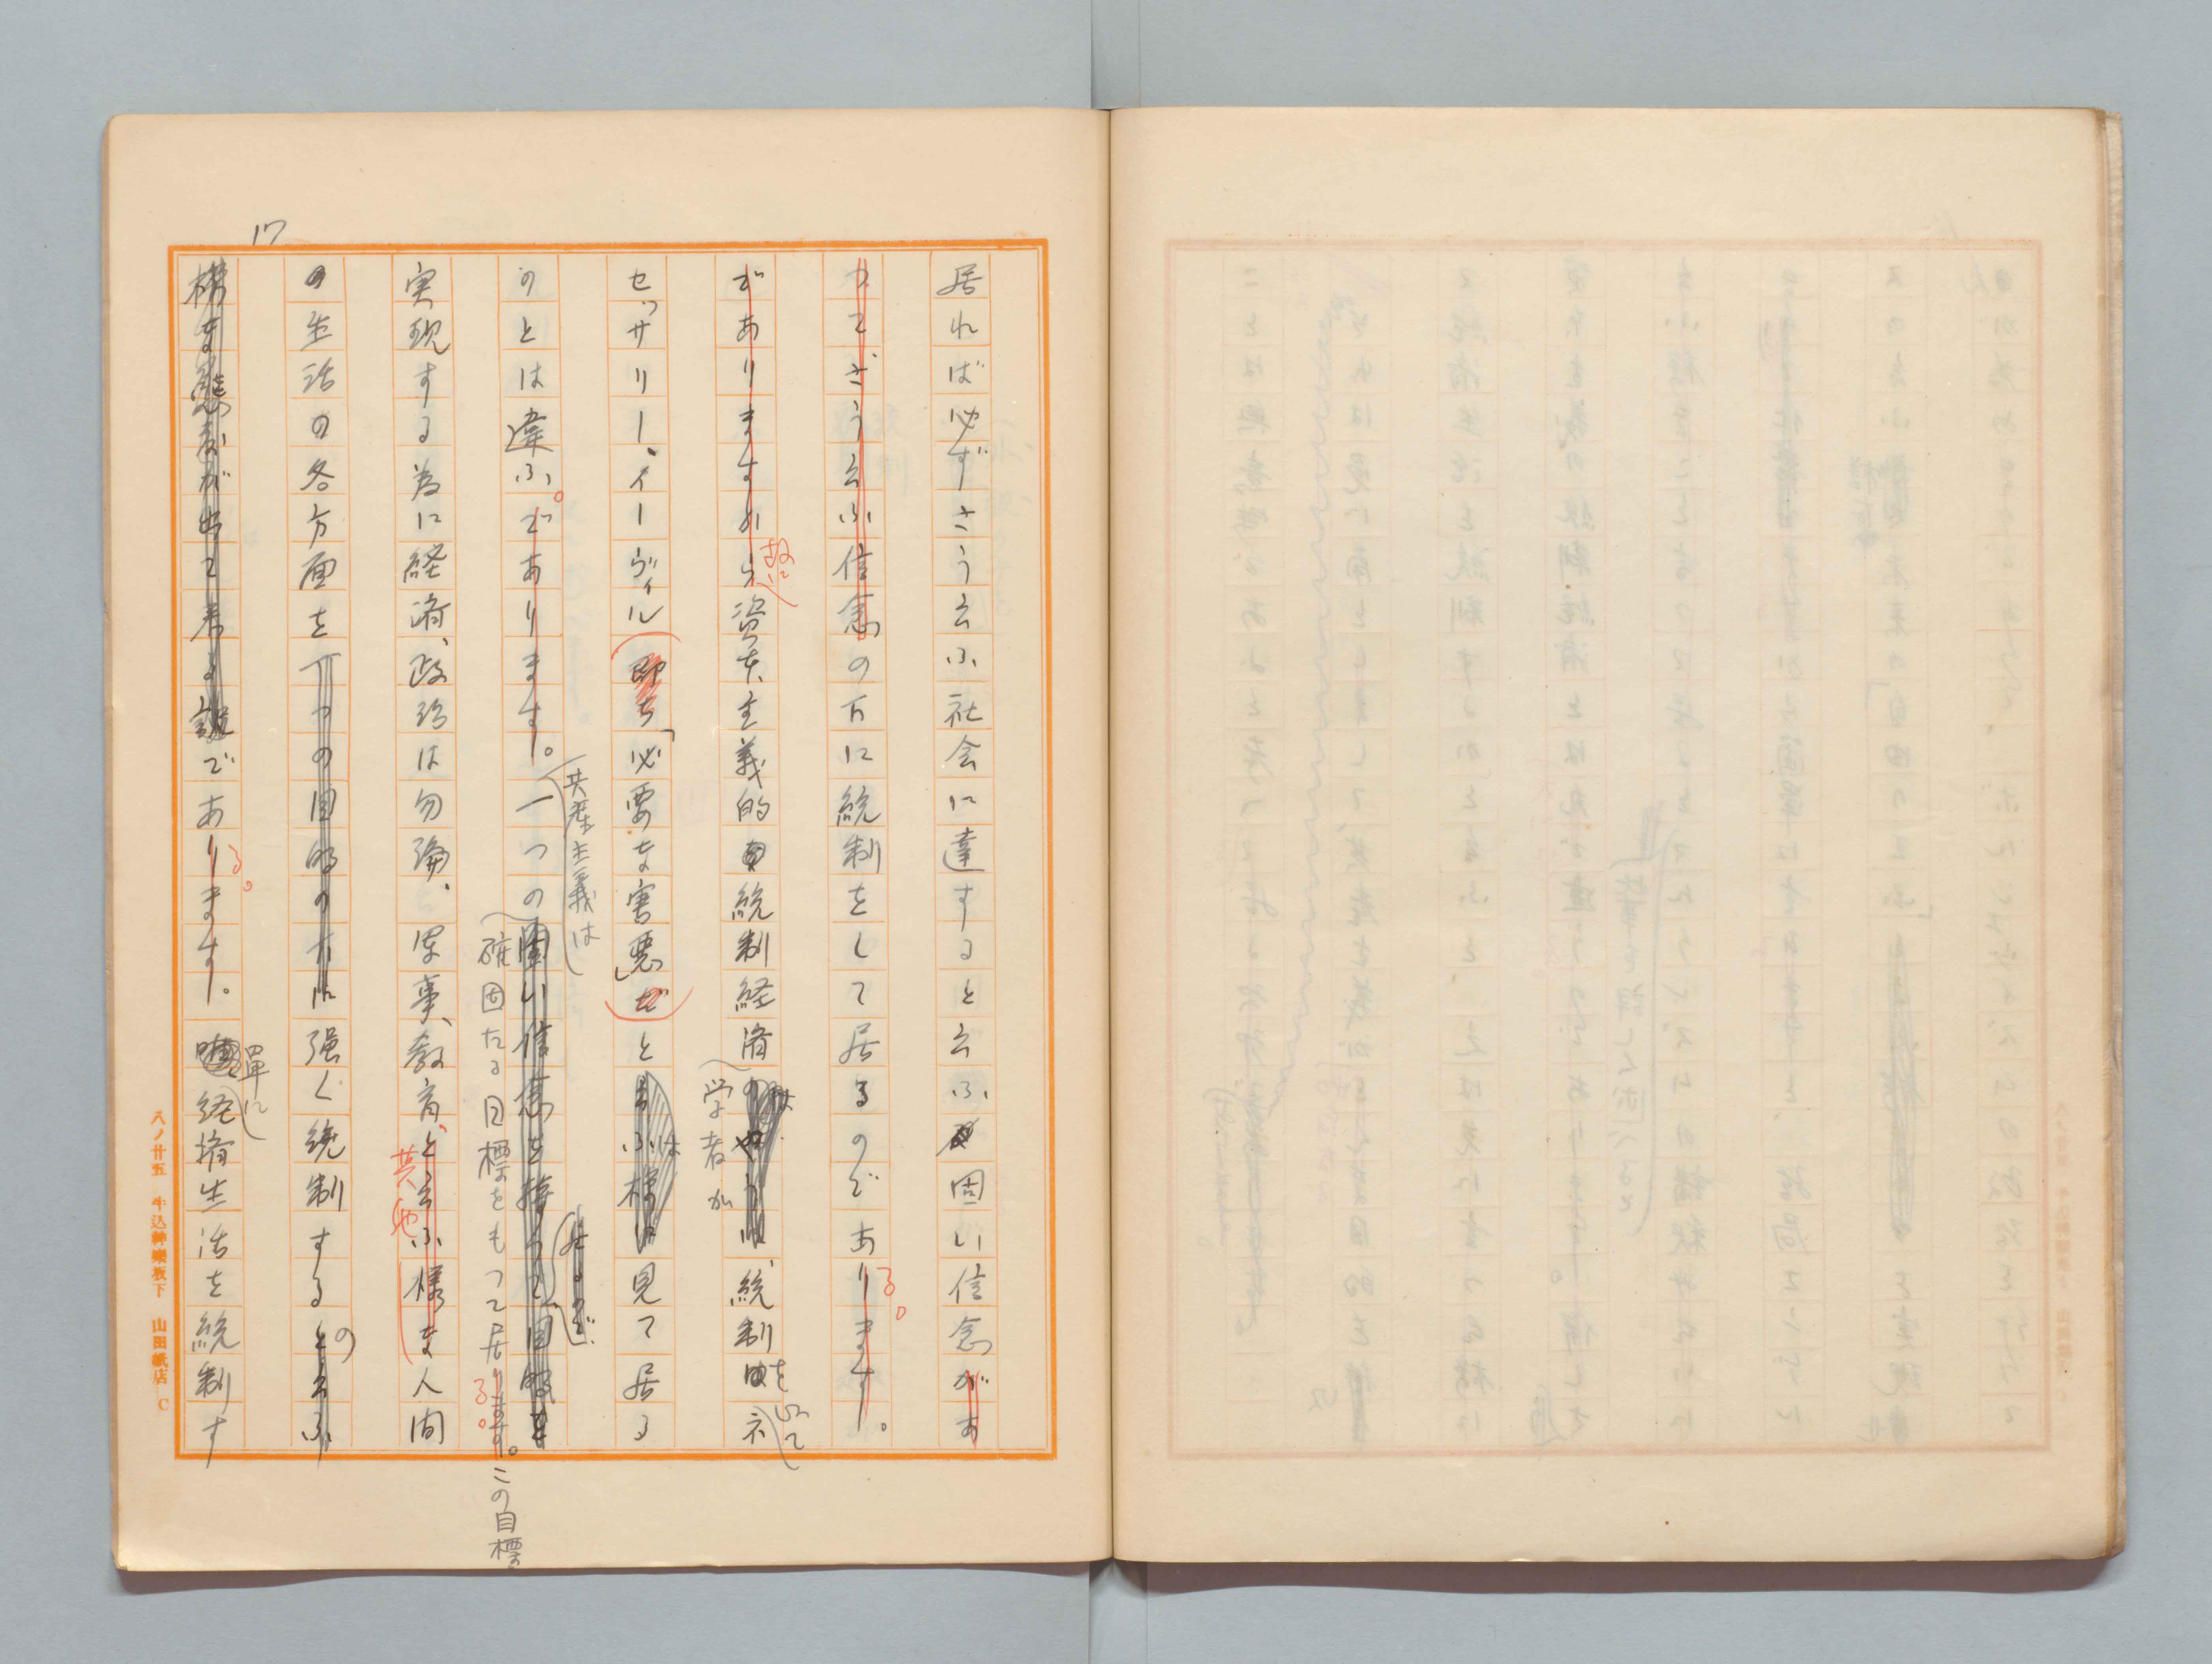 17
居れば必ずさう云ふ社会に達すると云ふ固い信念があ
つてさう云ふ信念の下に統制をして居るのであります。
る。
がありますから資本主義的統制経済の
故に
学者が
統制を以て
ネ
セッサリー、イーヴィル(即ち「必要な害悪」だと云ふ様に見て居る
は
のとは違ふ。であります。一つの固い信念を持つて目的を
共産主義は
居るので
確固たる目標をもつて居ります。この目標の
る。
実現する為に経済、政治は勿論、軍事、教育、と云ふ様な人間
其他
の生活の各方面を一つの目的の下に強く統制すると云ふ
の
様な態度が出て来る訳であります。
る。
単に
経済生活を統制す
八ノ廿五 牛込神樂坂下 山田紙店 C